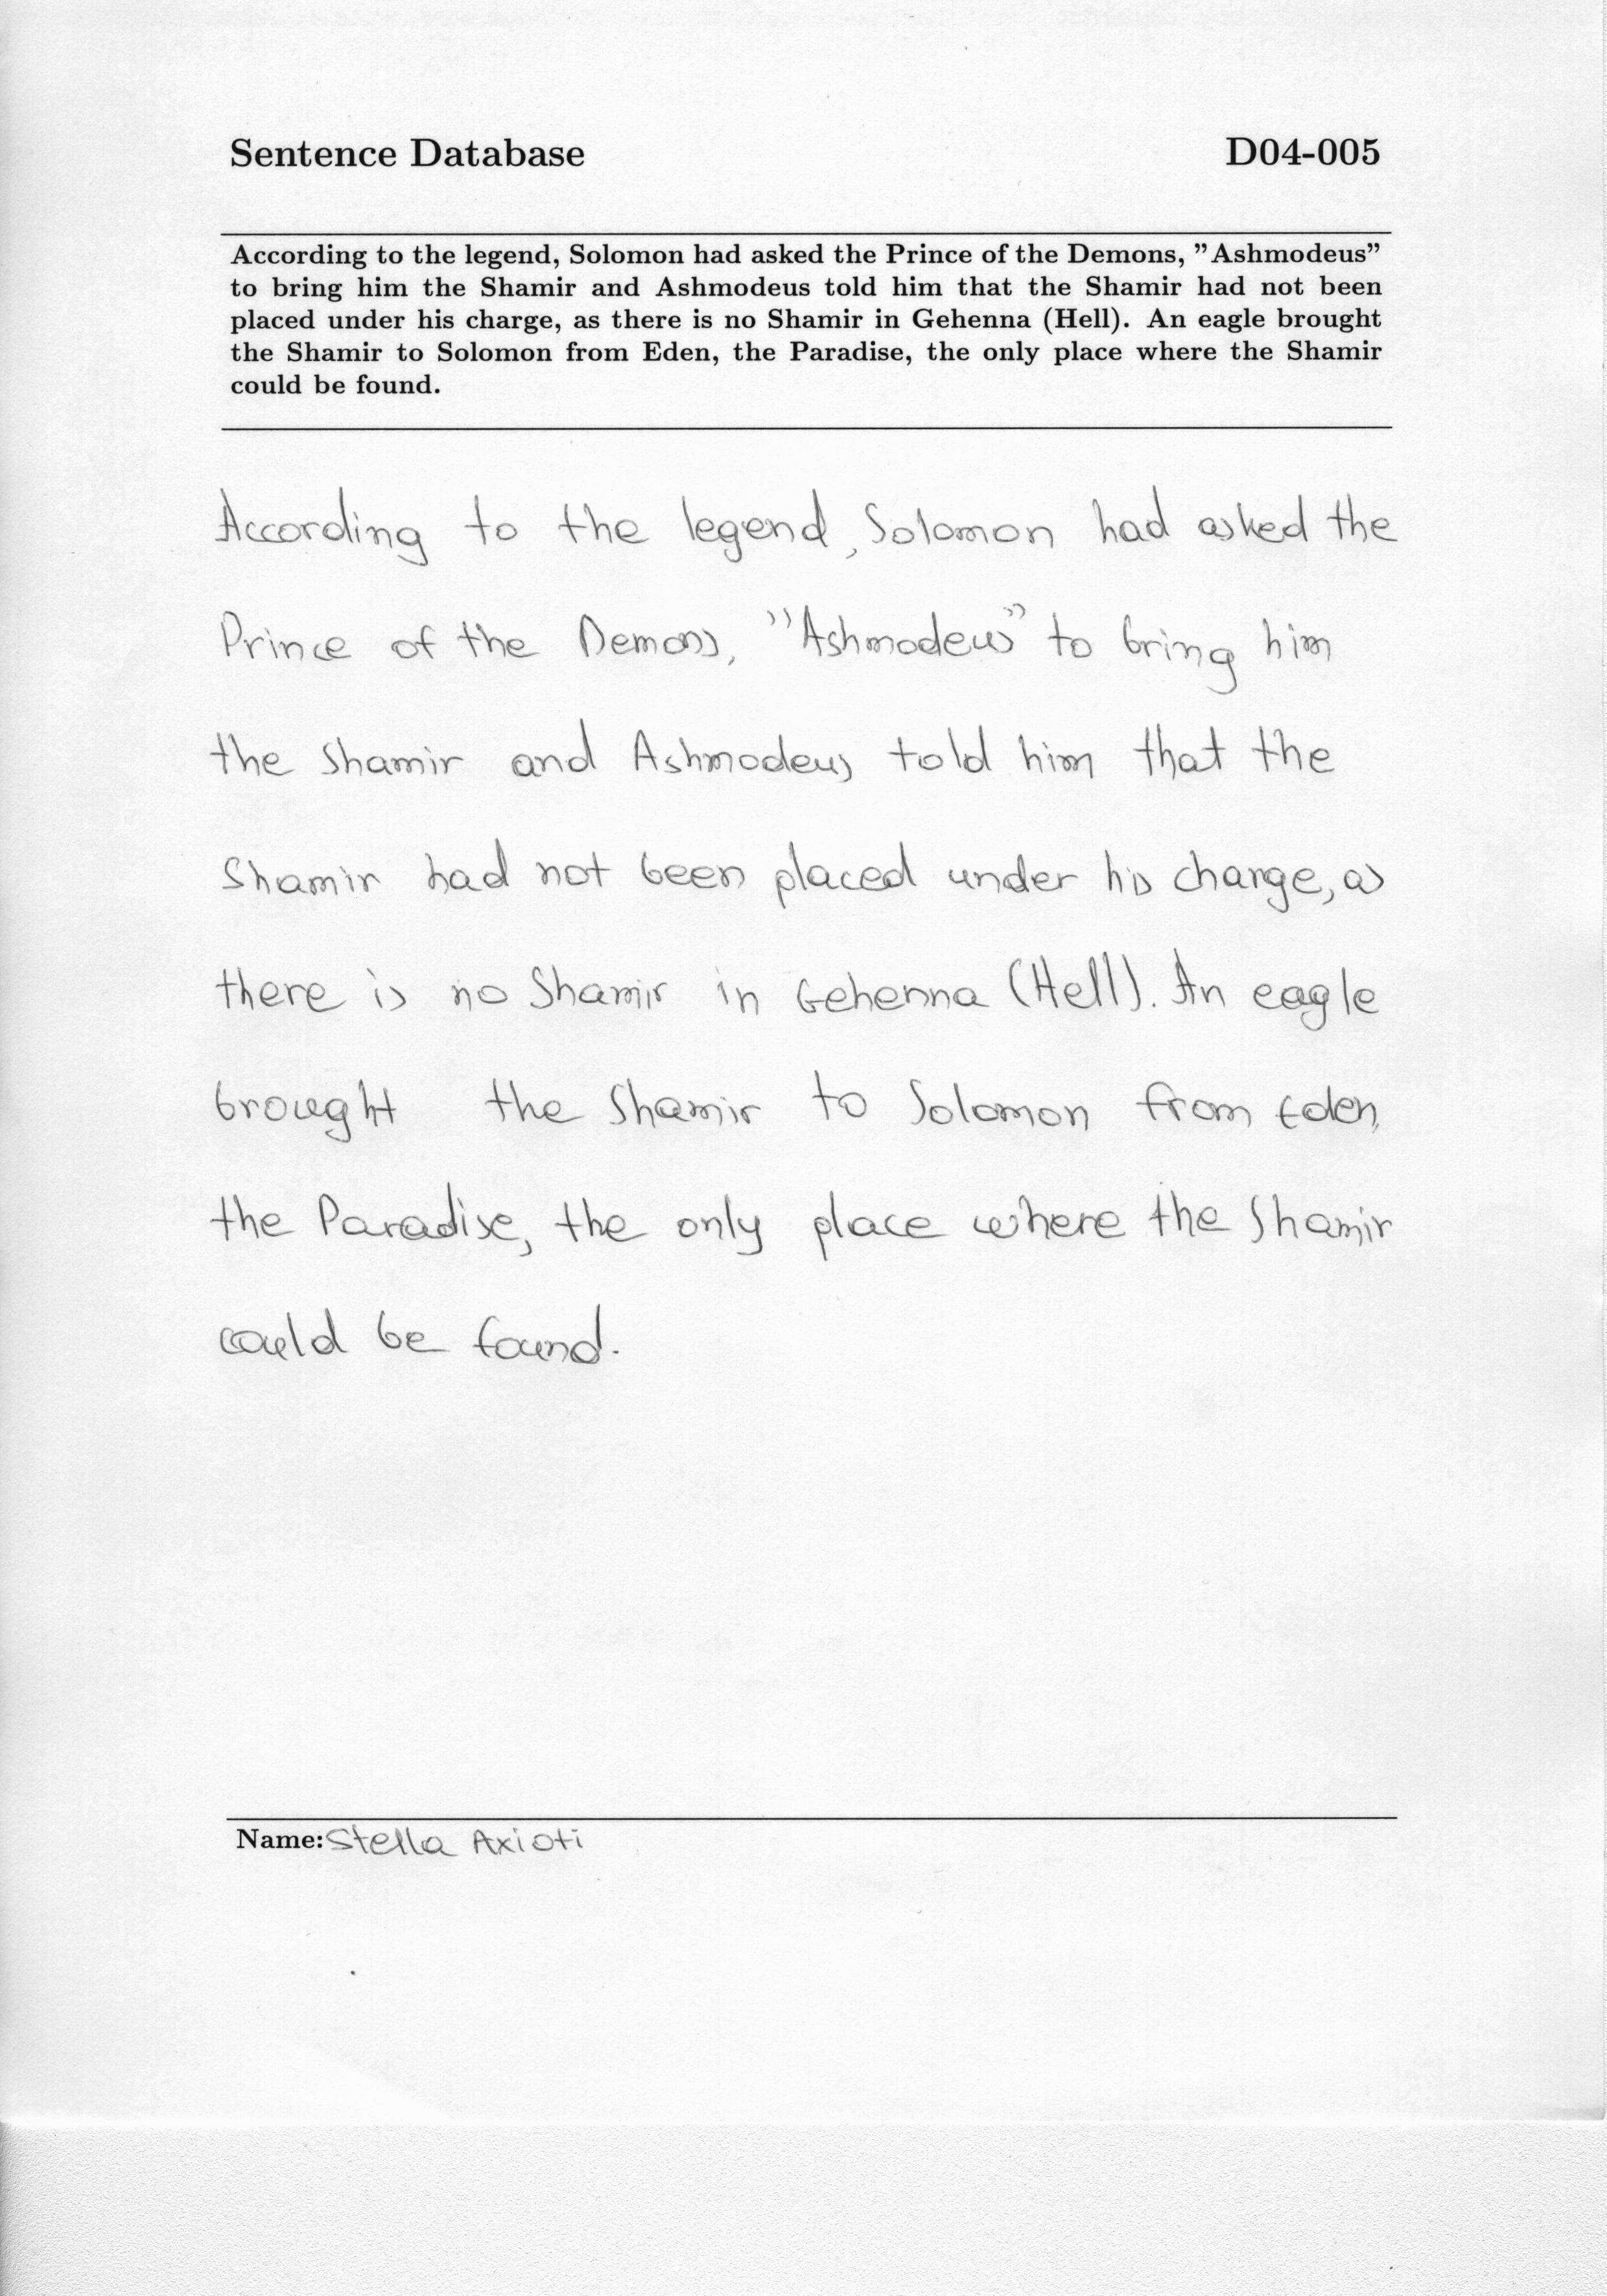 Sentence Database D04-005
According to the legend, Solomon had asked the Prince of the Demons, ”Ashmodeus”
to bring him the Shamir and Ashmodeus told him that the Shamir had not been
placed under his charge, as there is no Shamir in Gehenna (Hell). An eagle brought
the Shamir to Solomon from Eden, the Paradise, the only place where the Shamir
could be found.
According to the legend, Solomon had asked the
Prince of the Demons, ”Ashmodeus” to bring him
the Shamir and Ashmodeus told him that the
Shamir had not been placed under his charge, as
there is no Shamir in Gehenna (Hell). An eagle
brought the Shamir to Solomon from Eden,
the Paradise, the only place where the Shamir
could be found.
Name: Stella Axioti